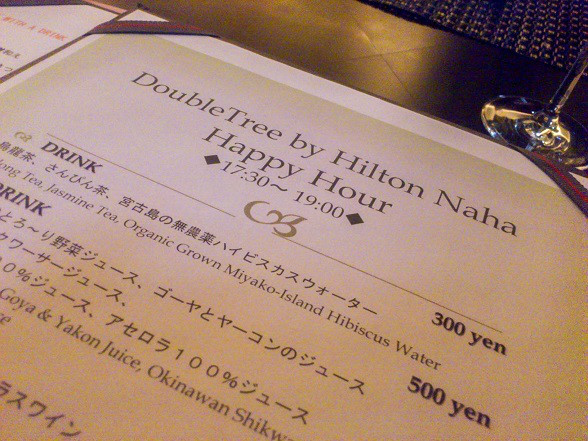 WITH A DRINK
DoubleTree by Hilton Naha
Happy Hour
◆17:30~ 19:00◆
DRINK
烏龍茶、さんぴん茶、宮古島の無農薬ハイビスカスウォーター
Tea, Jasmine Tea, Organic Grown Miyako-Island Hibiscus Water
300 yen
DRINK
とろ~り野菜ジュース、ゴーヤとヤーコンのジュース
クワーサージュース、
０％ジュース、アセロラ１００％ジュース
Goya & Yakon Juice, Okinawan
500 yen
ワイン